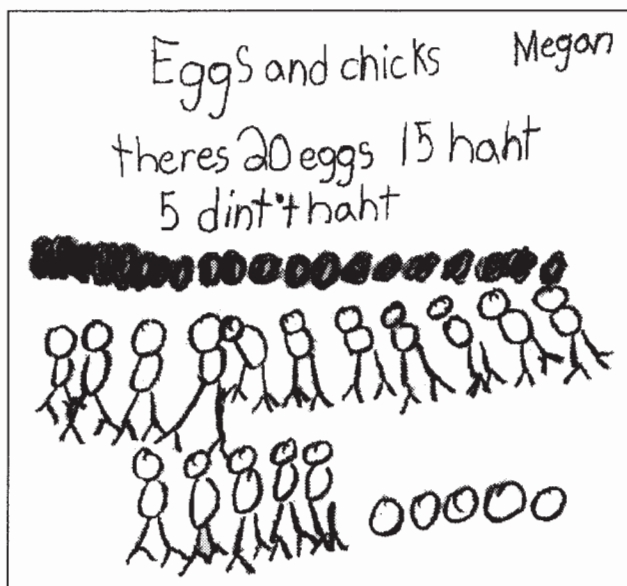 Eggs and chicks
Megan
theres 20 eggs 15 haht
5 dint't haht